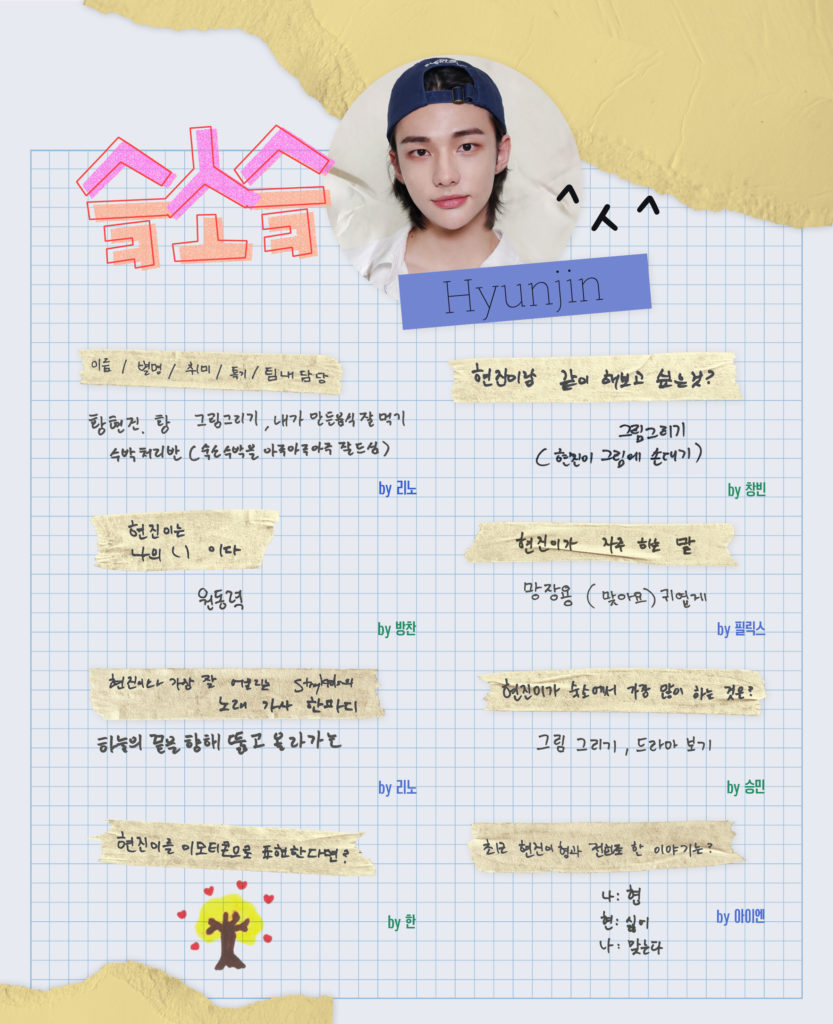 슼소슼
^ㅅ^
Hyunjin
이름 / 별명 / 취미 / 특기 / 팀내 담당
황현진. 황 그림그리기, 내가 만든음식 잘 먹기
수박처리반 (숙소수박을 아주아주아주 잘드심)
by 리노
현진이랑 같이 해보고 싶은것?
그림그리기
(현진이 그림에 손대기)
by 창빈
현진이는
나의 ( ) 이다
원동력
by 방찬
현진이가 자주 하는 말
망장용 (맞아요) 귀엽게
by 필릭스
현진이와 가장 잘 어울리는 Straykids의
노래 가사 한마디
하늘의 끝을 향해 뚫고 올라가는
by 리노
현진이가 숙소에서 가장 많이 하는 것은?
그림 그리기, 드라마 보기
by 승민
현진이를 이모티콘으로 표현한다면?
by 한
최근 현진이형과 전화로 한 이야기는?
나: 협
현: 싫어
나: 맞는다
by 아이엔